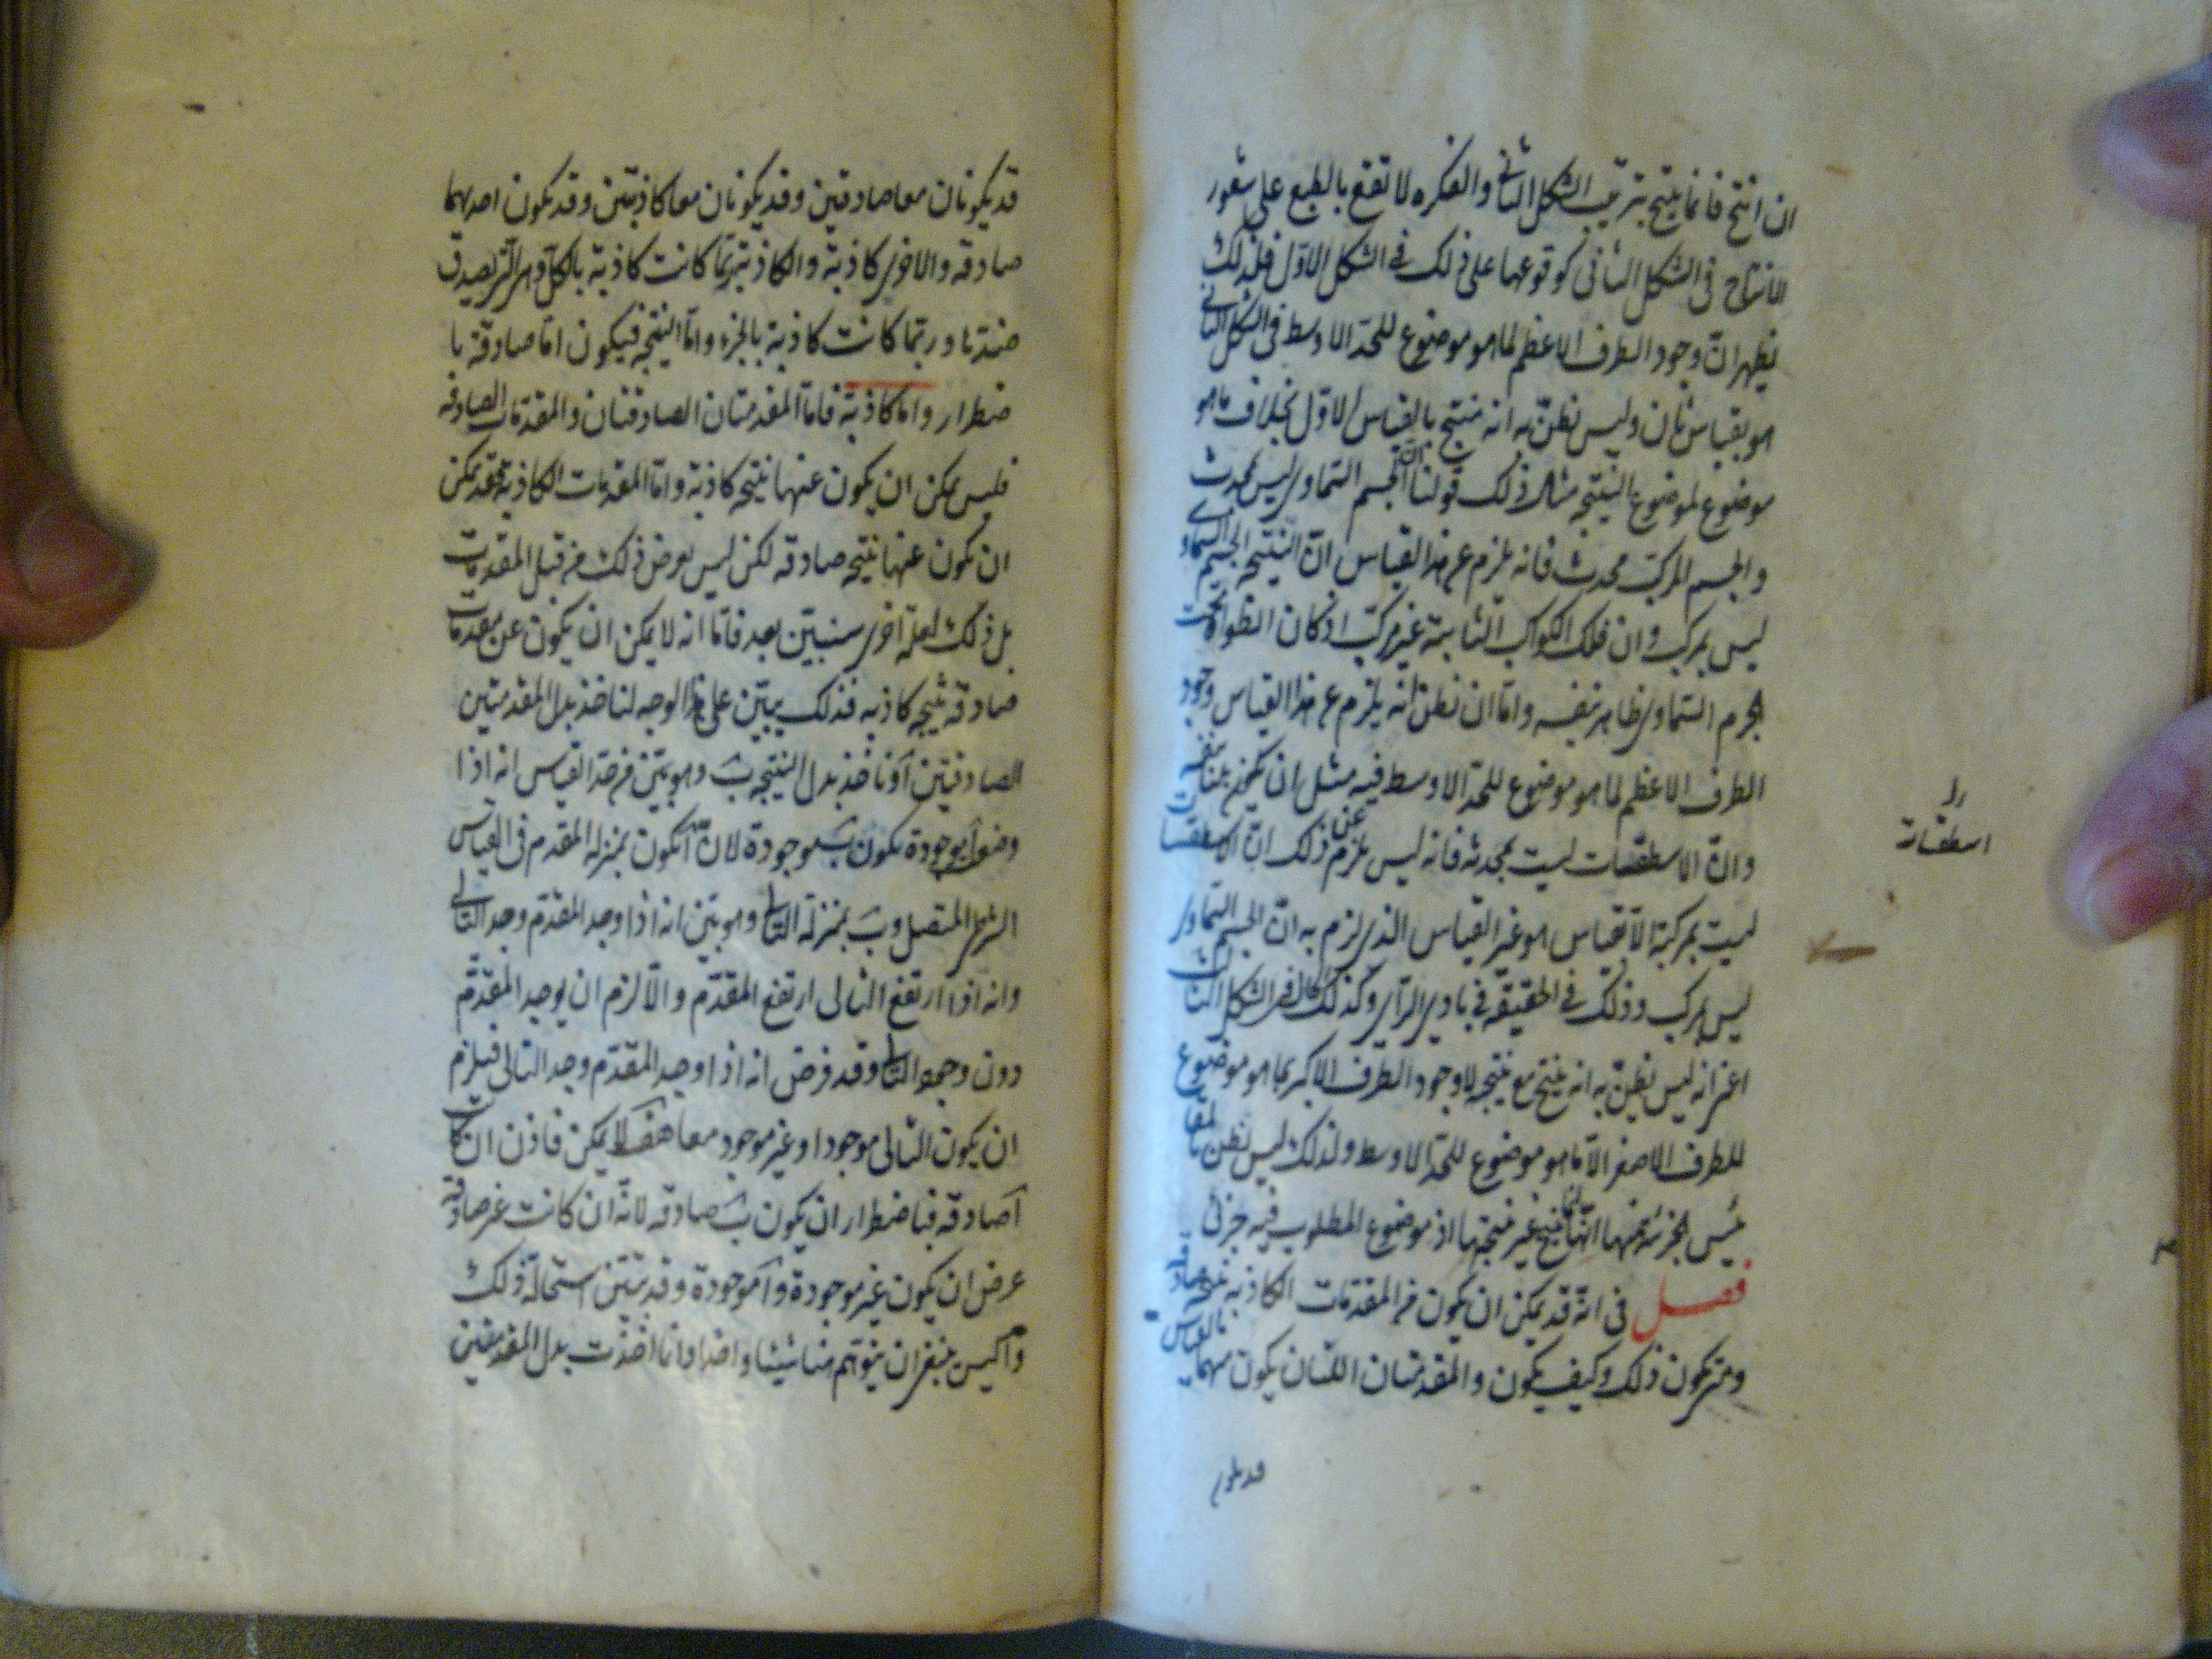 ان انتج فانما ينتج بترتيب الشكل الثانى والفكره لا تقع بالطبع على شعور
الانتاج فى الشكل الثانى كوقوعها على ذلك فى الشكل الاول فلذلك
يظهر ان وجود الطرف الاعظم لما هو موضوع للحد الاوسط فى الشكل الثانى
هو بقياس ثان وليس نظن به انه منتج بالقياس الاول بخلاف ما هو
موضوع لموضوع النتيجه مثال ذلك قولنا ان الجسم السماوى ليس بمحدث
والجسم المركب محدث فانه يلزم عن هذا القياس ان النتيجه الجسم السماوى
ليس بمركب وان فلك الكواكب الثابتة غير مركب اذ كان انطواؤه تحت
الجرم السماوى ظاهر بنفسه واما ان نظن انه يلزم عن هذا القياس وجود
الطرف الاعظم لما هو موضوع للحد الاوسط فيه مثل ان يكون بينا بنفسه
وان الاسطقسات ليست بمحدثه فانه ليس يلزم عن ذلك ان الاسطقسات
ليست بمركبة الا بقياس هو غير القياس الذى لزم به ان الجسم السماوى
ليس بمركب وذلك فى الحقيقه فى بادى الراى وكذلك الحال فى الشكل الثالث
اعنى انه ليس يظن به انه ينتج مع نتيجه لا وجود الطرف الاكبر لما هو موضوع
للطرف الاصغر الا ما هو موضوع للحد الاوسط ولذلك ليس نظن بالمقا
ئيس الجزئيه منها انها تنتج غير نتيجتها اذ موضوع المطلوب فيه جزئى
فصل فى انه قد يمكن ان يكون من المقدمات الكاذبه نتيجه صادقه
ومتى يكون ذلك وكيف يكون والمقدمتان اللتان يكون منهما القياس
قد يكونان
اسطقسات
قد يكونان معا صادقتين وقد يكونان معا كاذبتين وقد يكون احديهما
صادقه والاخرى كاذبة والكاذبة ربما كانت كاذبة بالكل وهى التى يصدق
ضدها وربما كانت كاذبة بالجزء واما النتيجه فيكون اما صادقة با
ضطرار واما كاذبة فاما المقدمتان الصادقتان والمقدمات الصادقه
فليس يمكن ان يكون عنها نتيجه كاذبة واما المقدمات الكاذبة فقد يمكن
ان يكون عنها نتيجه صادقه لكن ليس يعرض ذلك من قبل المقدمات
بل ذلك لعلة اخرى سنبين بعد فاما انه لا يمكن ان يكون عن مقدمات
صادقه نتيجه كاذبه فذلك يبين على هذا الوجه لناخذ بدل المقدمتين
الصادقتين آ وناخذ بدل النتيجه ب وهو بين من حد القياس انه اذا
وضع آ موجودة يكون ب موجودة لان آ يكون بمنزله المقدم فى القياس
الشرطى المتصل وب بمنزلة التالى وهو بين انه اذا وجد المقدم وجد التالى
وانه اذا ارتفع التالى ارتفع المقدم والا لزم ان يوجد المقدم
دون وجود التالى وقد فرض انه اذا وجد المقدم وجد التالى فيلزم
ان يكون التالى موجودا وغير موجود معا هف لا يمكن فاذن ان كانت
آ صادقه فباضطرار ان يكون ب صادقه لانه ان كانت غير صادقة
عرض ان يكون غير موجودة وآ موجودة وقد تبين استحالة ذلك
وليس ينبغى ان يتوهم هنا شيئا واحدا وانا اخذت بدل المقدمتين